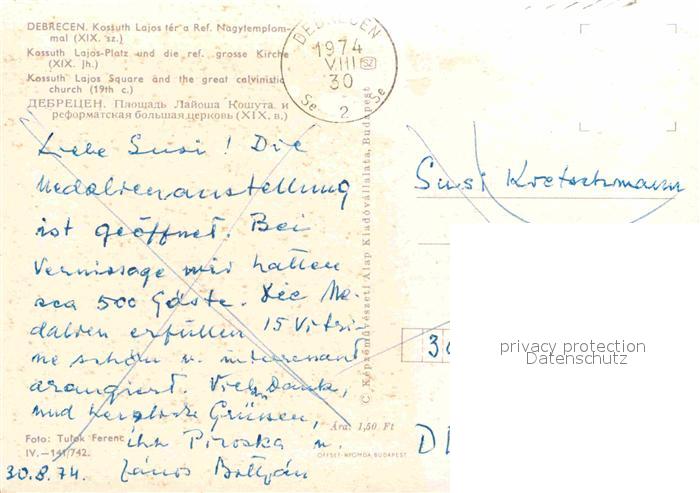 DEBRECEN. Kossuth Lajos tér a Ref. Nagytemplom-
mal (XIX. sz.)
Kossuth Lajos-Platz und die ref. grosse Kirche
(XIX. Jh.)
Kossuth Lajos Square and the great calvinistic
church (19th c.)
ДЕБРЕЦЕН. Площадь Лайоша Кошута и
реформатская большая церковь (XIX. в.)
DEBRECEN
1974
VIII SZ
30
Se 2 Se
Liebe Susi! Die
Medalienaustellung
ist geöffnet. Bei
Vernissage wir hatten
zca 500 Gäste. Die Me-
dalien erfüllen 15 Vitri-
ne schön u. interessant
arangiert. Vielen Dank,
und herzliche Grüssen,
ihr Piroska u.
János
30.8.74.
Foto: Tulok Ferenc
IV.—141/742.
© Képzőművészeti Alap Kiadóvállalata, Budapest
Ára: 1,50 Ft
OFFSET-NYOMDA, BUDAPEST
Susi Kretschmann
privacy protection
Datenschutz